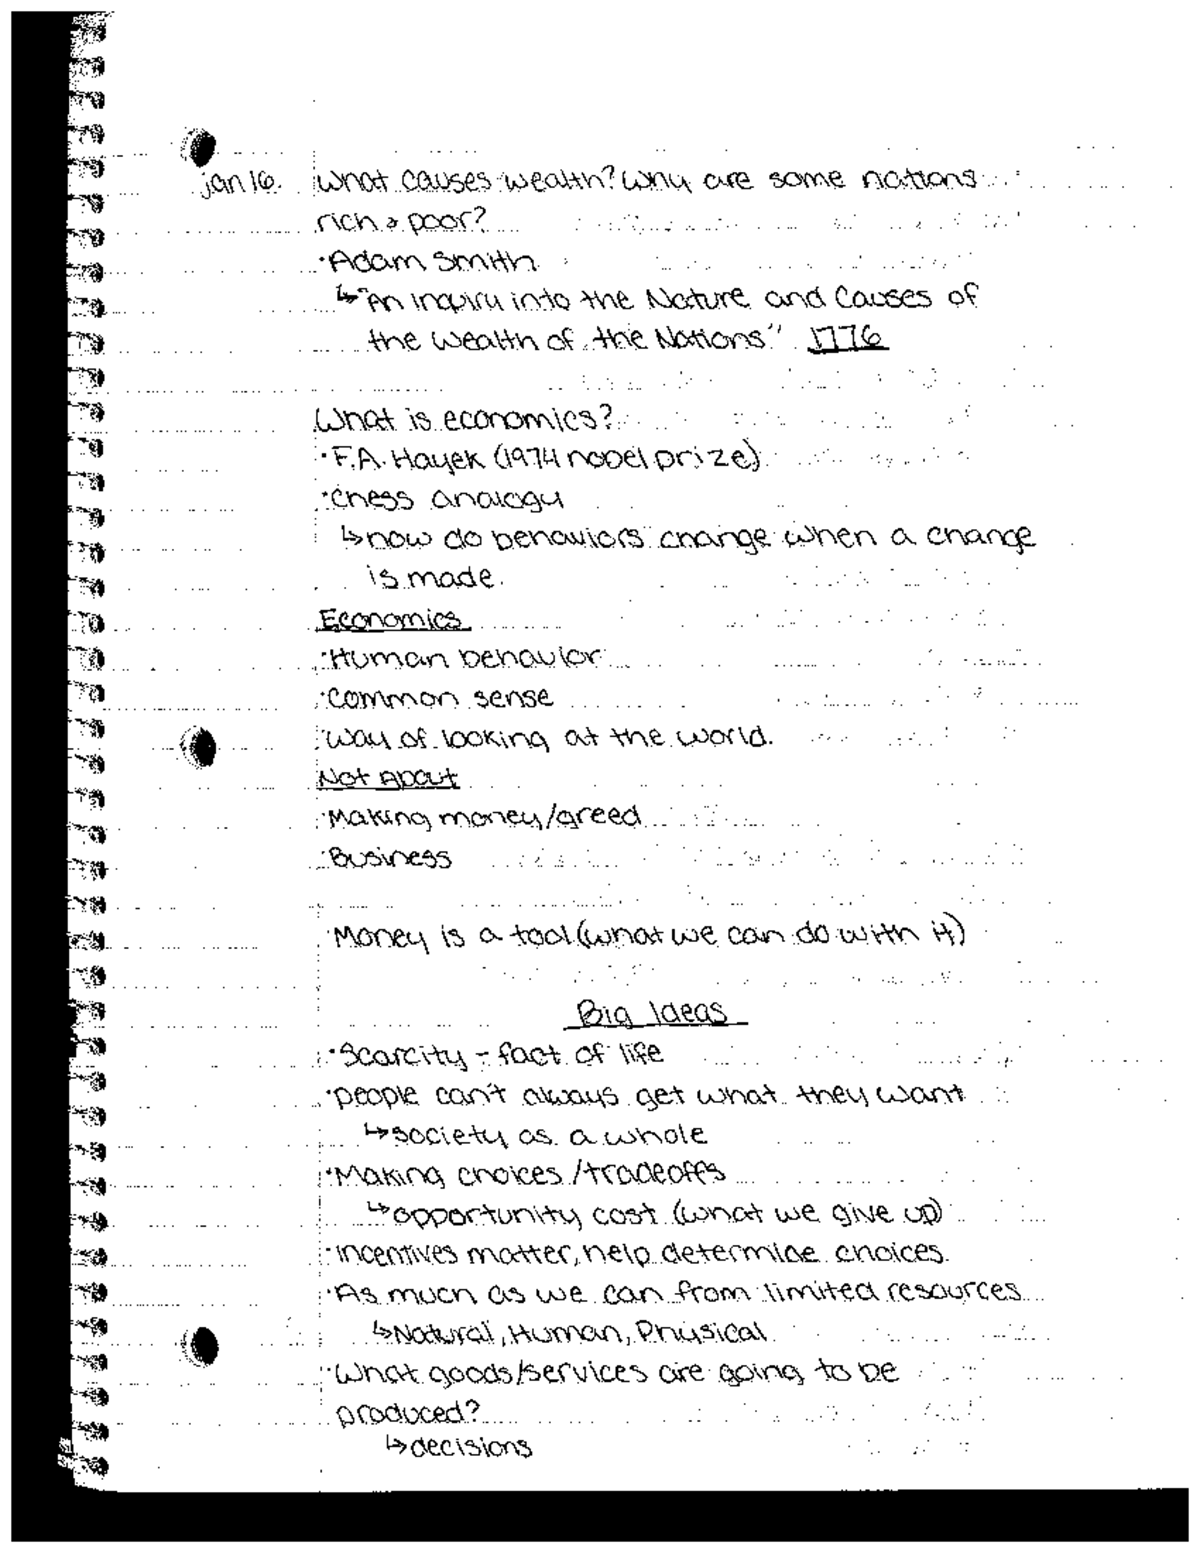 jan 16. What causes wealth? Why are some nations
rich & poor?
·Adam Smith
↳"An Inquiry into the Nature and Causes of
the Wealth of the Nations" 1776
What is economics?
·F.A. Hayek (1974 nobel prize)
·Chess analogy
↳how do behaviors change when a change
is made.
Economics
·Human behavior
·Common sense
·Way of looking at the world.
Not About
·Making money/greed
·Business
Money is a tool (what we can do with it)
Big Ideas
·Scarcity - fact of life
·people can't always get what they want
↳society as a whole
·Making choices/tradeoffs
↳opportunity cost (what we give up)
·Incentives matter, help determine choices.
·As much as we can from limited resources
↳Natural, Human, Physical
·What goods/services are going to be
produced?
↳decisions